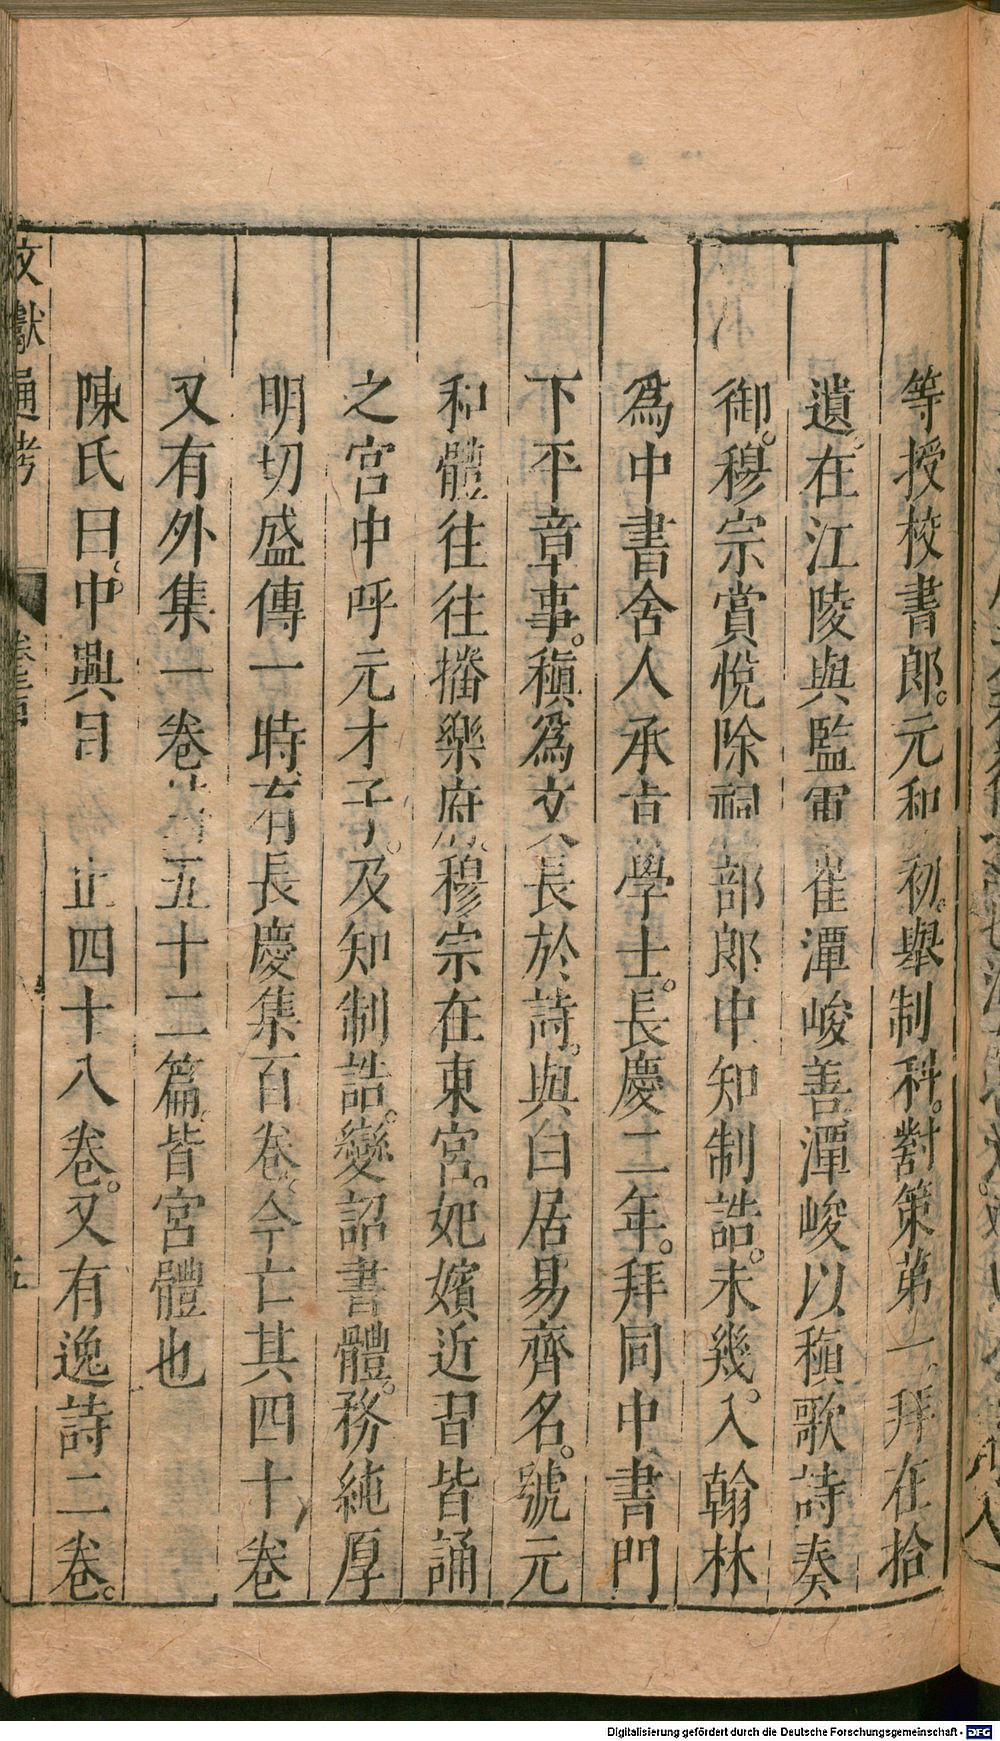 等授校書郎。元和初。舉制科。對策第一。拜左拾
遺。在江陵與監軍崔潭峻善潭峻以稹歌詩奏
御。穆宗賞悅除祠部郎中知制誥。未幾。入翰林
爲中書舍人承旨學士。長慶二年。拜同中書門
下平章事。稹爲文長於詩。與白居易齊名。號元
和體往往播樂府穆宗在東宮。妃嬪近習皆誦
之宮中呼元才子。及知制誥。變詔書體。務純厚
明切盛傳一時有長慶集百卷。今亡其四十卷
又有外集一卷 五十二篇。皆宮體也
陳氏曰。中興 目 止四十八卷。又有逸詩二卷。
文獻通考
五
Digitalisierung gefördert durch die Deutsche Forschungsgemeinschaft - DFG